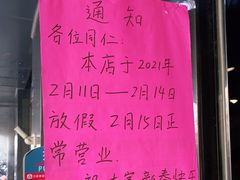 通知
各位同仁:
本店于2021年
2月11日——2月14日
放假.2月15日正
常营业.
祝大家新春快乐